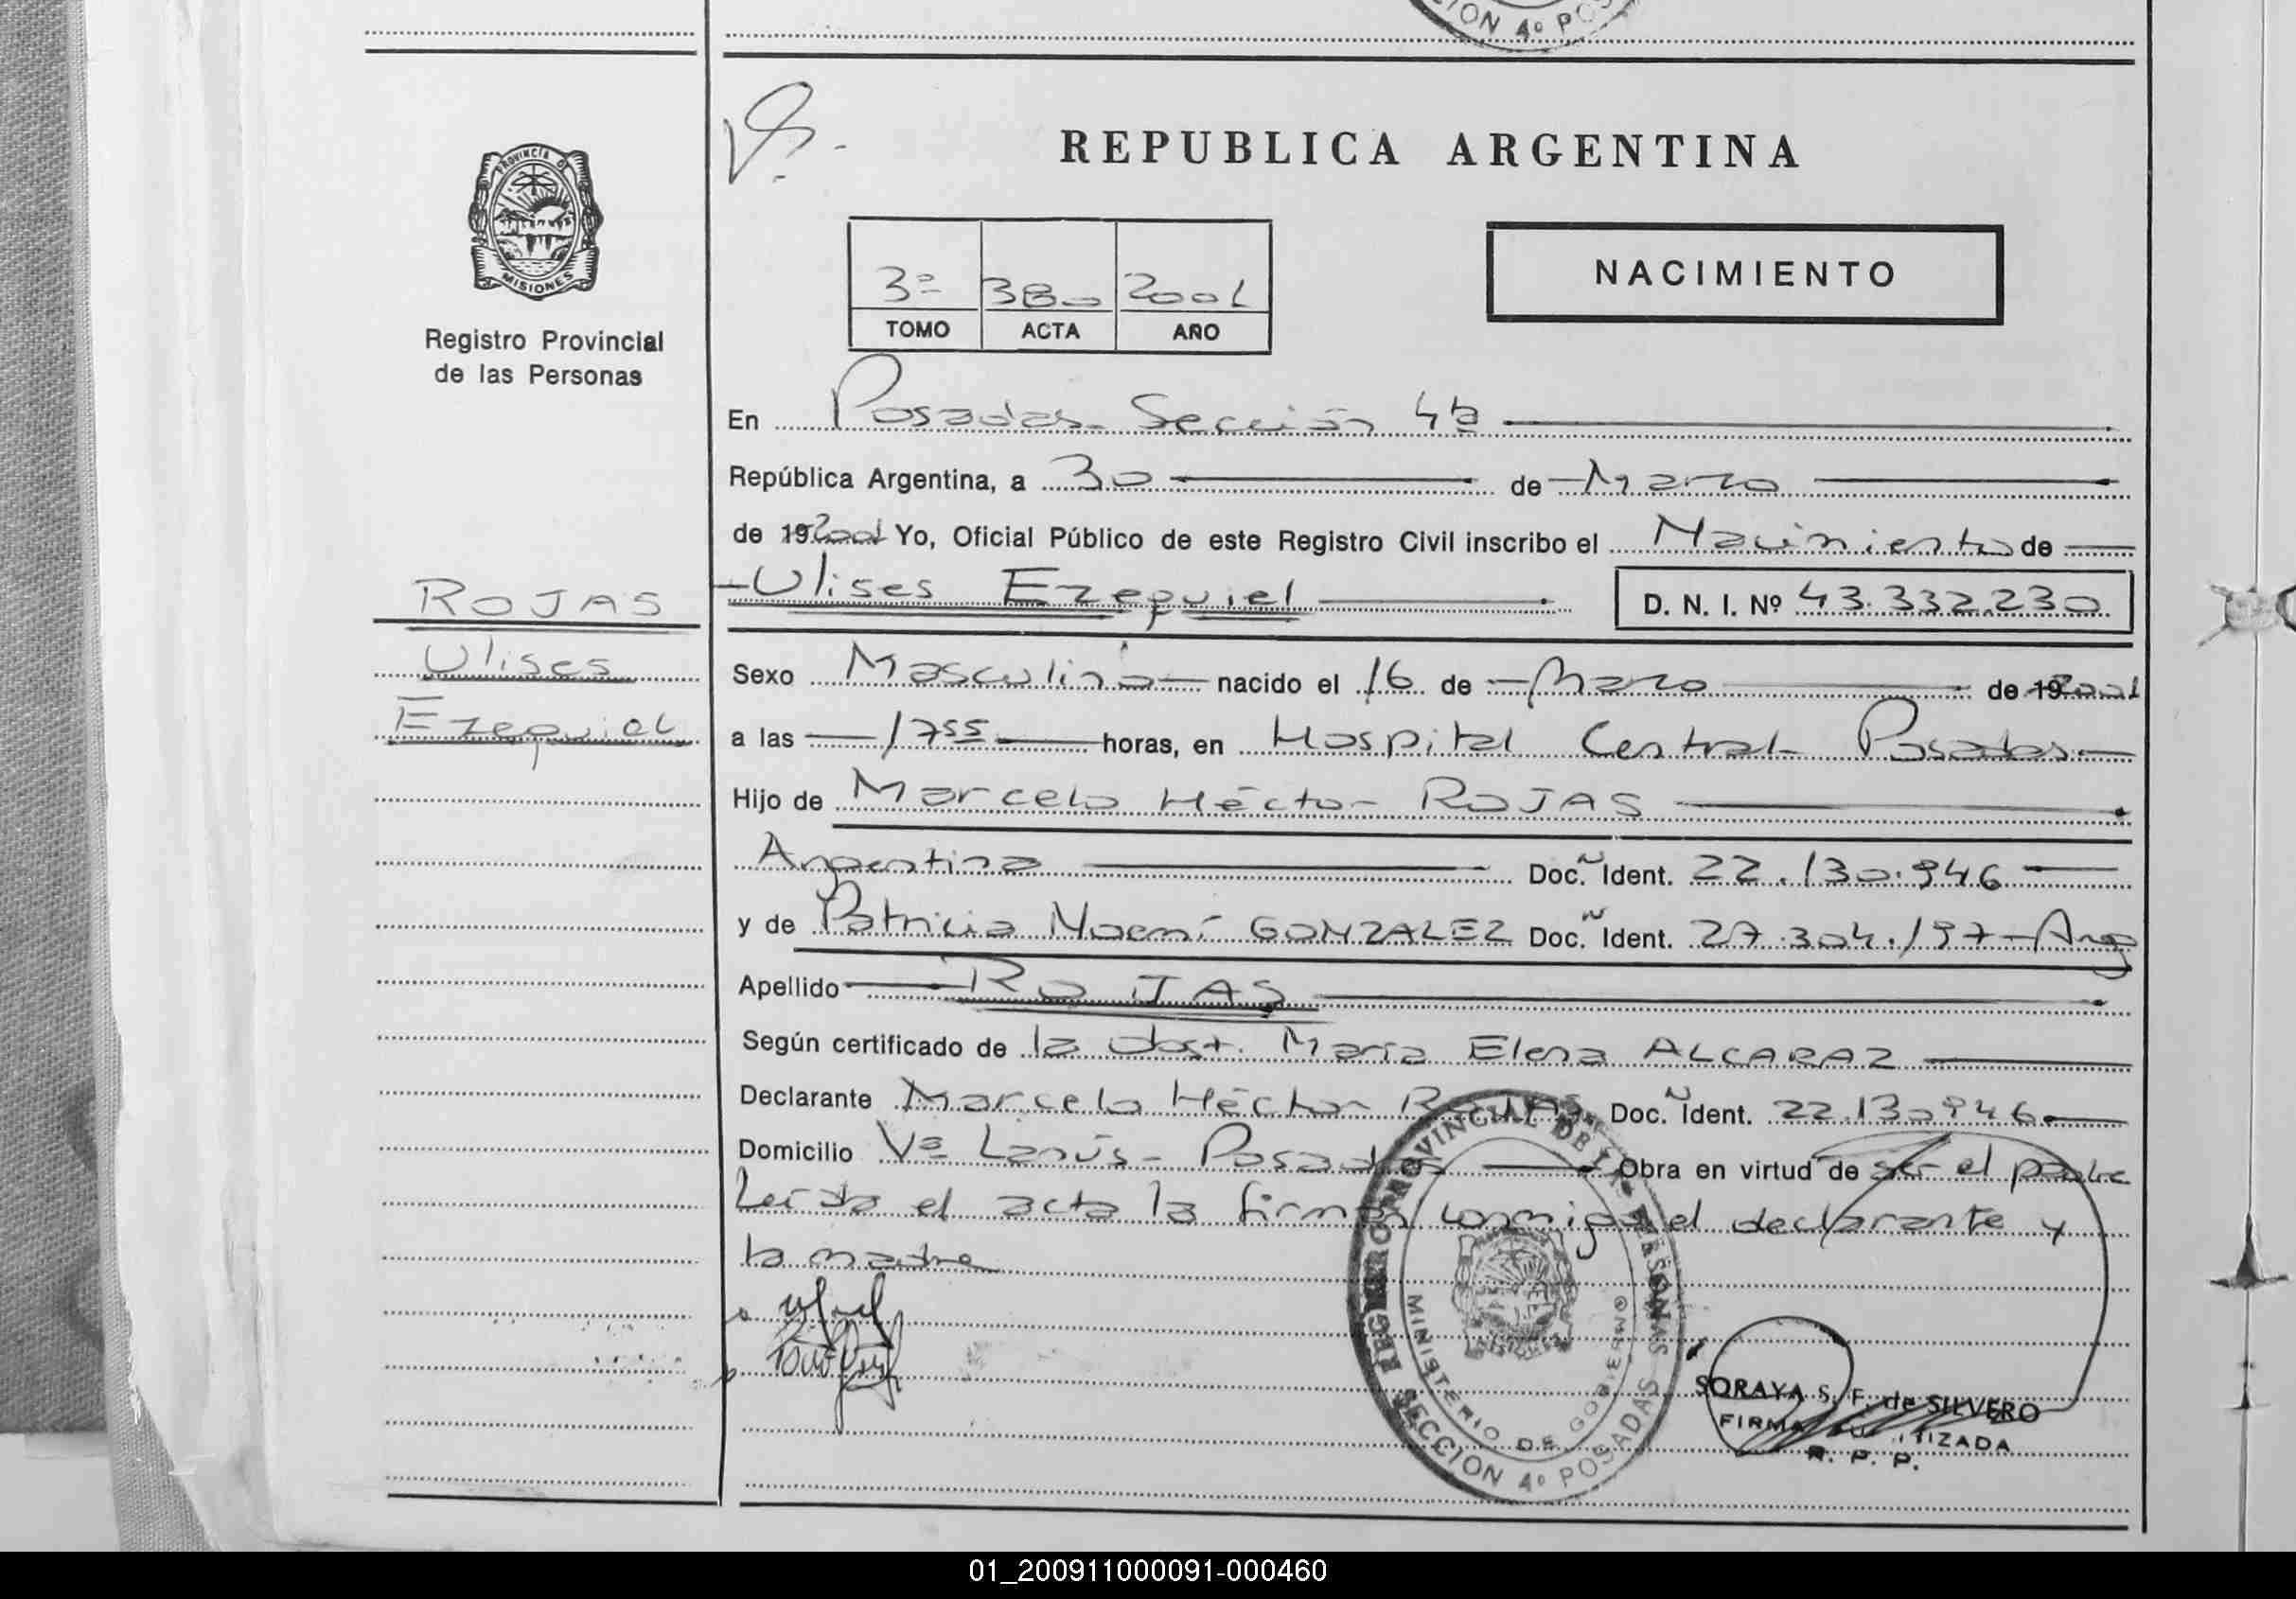 CION 4º PO
REPUBLICA ARGENTINA
PROVINCIA D
MISIONES
Registro Provincial
de las Personas
3º 380 2001
TOMO ACTA AÑO
NACIMIENTO
En Posadas Sección 4ta
República Argentina, a 30 de Marzo
de 19 2001 Yo, Oficial Público de este Registro Civil inscribo el Nacimiento de
ROJAS
Ulises
Ezequiel
Ulises Ezequiel D. N. I. Nº 43.332.230
Sexo Masculino nacido el 16 de Marzo de 19 2001
a las 17 55 horas, en Hospital Central Posadas
Hijo de Marcelo Héctor ROJAS
Argentina Doc. Ident. 22.130.946
y de Patricia Noemí GONZALEZ Doc. Ident. 27.304.197 Arg
Apellido ROJAS
Según certificado de la obst. María Elena ALCARAZ
Declarante Marcelo Héctor ROJAS Doc. Ident. 22.130946
Domicilio Vª Lanús - Posadas Obra en virtud de ser el padre
Leída el acta la firman conmigo el declarante y
la madre
REGISTRO PROVINCIAL DE LAS PERSONAS
MINISTERIO DE GOBIERNO
SECCION 4º POSADAS
SORAYA S. F. de SILVERO
FIRMA
R. P. P.
01_200911000091-000460